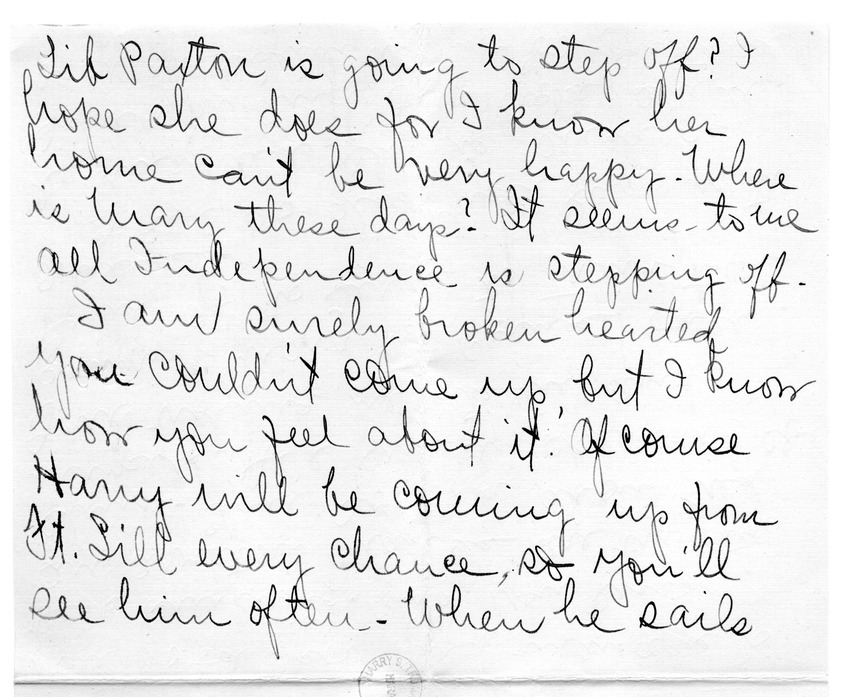 Lib Paxton is going to step off? I
hope she does for I know her
home can't be very happy. Where
is Mary these days? It seems to me
all Independence is stepping off.
I am surely broken hearted
you couldn't come up, but I know
how you feel about it. Of course
Harry will be coming up from
Ft. Sill every chance, so you'll
see him often. - When he sails
HARRY S.